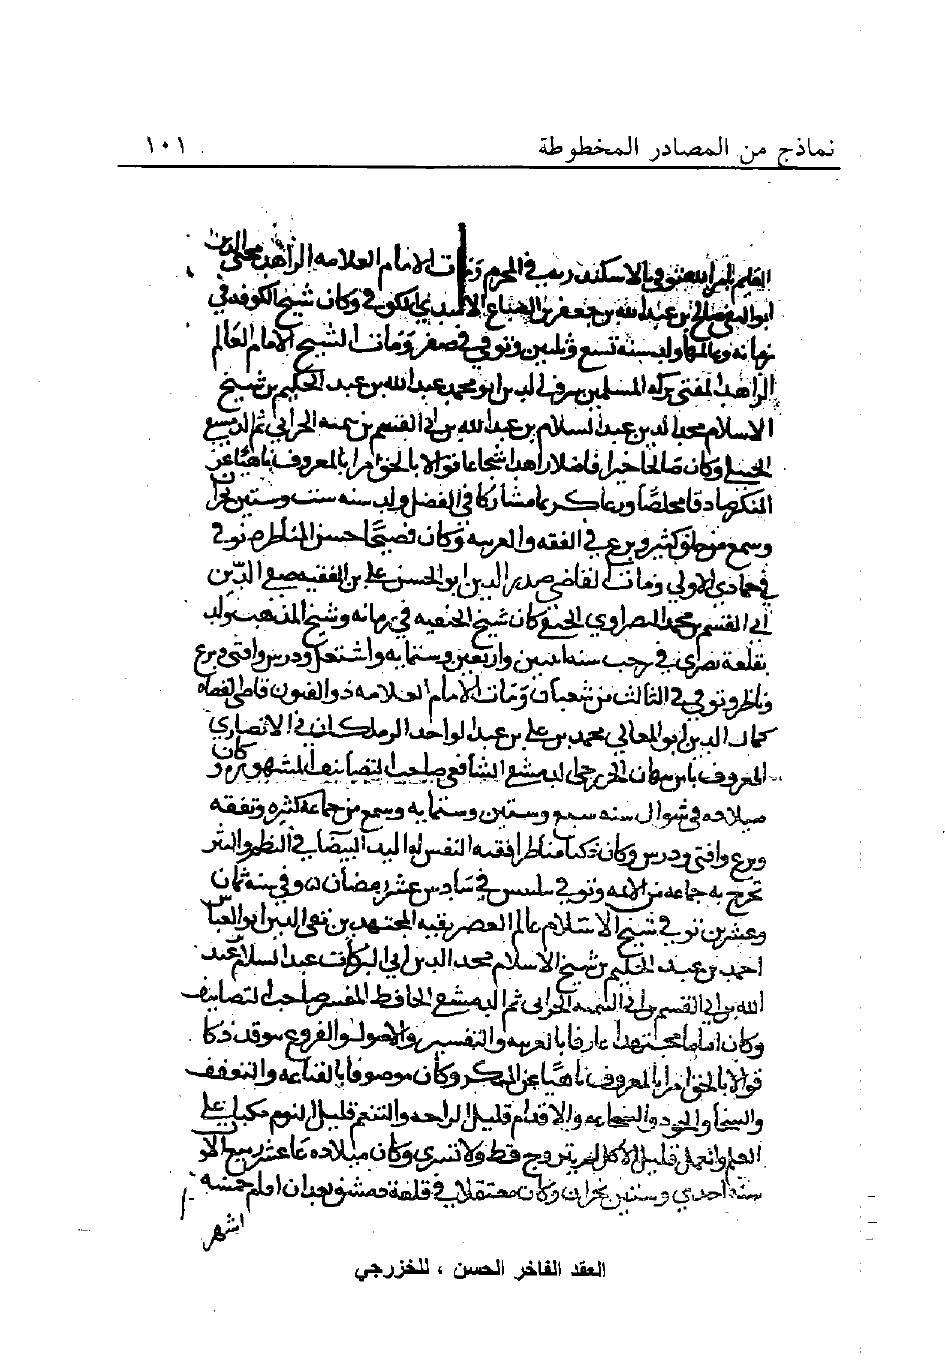 نماذج من المصادر المخطوطة ١٠١
توفي بالاسكندريه في المحرم ومات الامام العلامه الزاهد محيى الدين
بن عبدالله بن جعفر بن الصباغ الاسدي الكوفي وكان شيخ الكوفه في
زمانه وعالمها ولد سنه تسع وثلثين وتوفي في صفر ومات الشيخ الامام العالم
الزاهد المفتي بركه المسلمين شرف الدين ابو محمد عبدالله بن عبد الحليم بن شيخ
الاسلام مجد الدين عبد السلام بن عبدالله بن ابي القسم بن تيميه الحراني ثم الدمشقي
الحنبلي وكان صالحا خيرا فاضلا زاهدا شجاعا قوالا بالحق امرا بالمعروف ناهيا عن
المنكر صادقا مخلصا ورعا كريما مشاركا في الفضل ولد سنه ست وستين بحران
وسمع من خلق كثير وبرع في الفقه والعربيه وكان فصيحا حسن المناظره توفي
في جمادي الاولي ومات القاضي صدر الدين ابو الحسن علي بن الفقيه صفي الدين
ابي القسم بن محمد البصراوي الحنفي كان شيخ الحنفيه في زمانه وشيخ المذهب ولد
بقلعة بصرى في رجب سنه اثنين واربعين وستمايه واشتغل ودرس وافتى وبرع
وناظر وتوفي في الثالث من شعبان ومات الامام العلامه ذو الفنون قاضي القضاه
كمال الدين ابو المعالي محمد بن علي بن عبد الواحد الزملكاني الانصاري
المعروف بابن الدمشقي الشافعي صاحب التصانيف المشهوره وكان
ميلاده في شوال سنه سبع وستين وستمايه وسمع من جماعة كثيره وتفقه
وبرع وافتى ودرس وكان ذكيا مناظرا فقيه النفس له اليد البيضا في النظم والنثر
تخرج به جماعه من الائمه وتوفي ببلبيس في سادس عشر رمضان وفي سنه ثمان
وعشرين توفي شيخ الاسلام عالم العصر بقيه المجتهدين تقي الدين ابو العباس
احمد بن عبد الحليم بن شيخ الاسلام مجد الدين ابي البركات عبد السلام بن عبد
الله بن ابي القسم بن تيميه الحراني ثم الدمشقي الحافظ المفسر صاحب التصانيف
وكان اماما مجتهدا عارفا بالعربيه والتفسير والاصول والفروع يتوقد ذكا
قوالا بالحق امرا بالمعروف ناهيا عن المنكر وكان موصوفا بالقناعه والتعفف
والسخا والجود والشجاعه والاقدام قليل الراحه والتنعم قليل النوم مكبا على
العلم والعمل قليل الاكل لم يتزوج قط ولا تسرى وكان ميلاده عاشر ربيع الاول
سنة احدي وستين بحران وكان معتقلا في قلعة دمشق بعد ان اقام خمسه
اشهر
العقد الفاخر الحسن ، للخزرجي